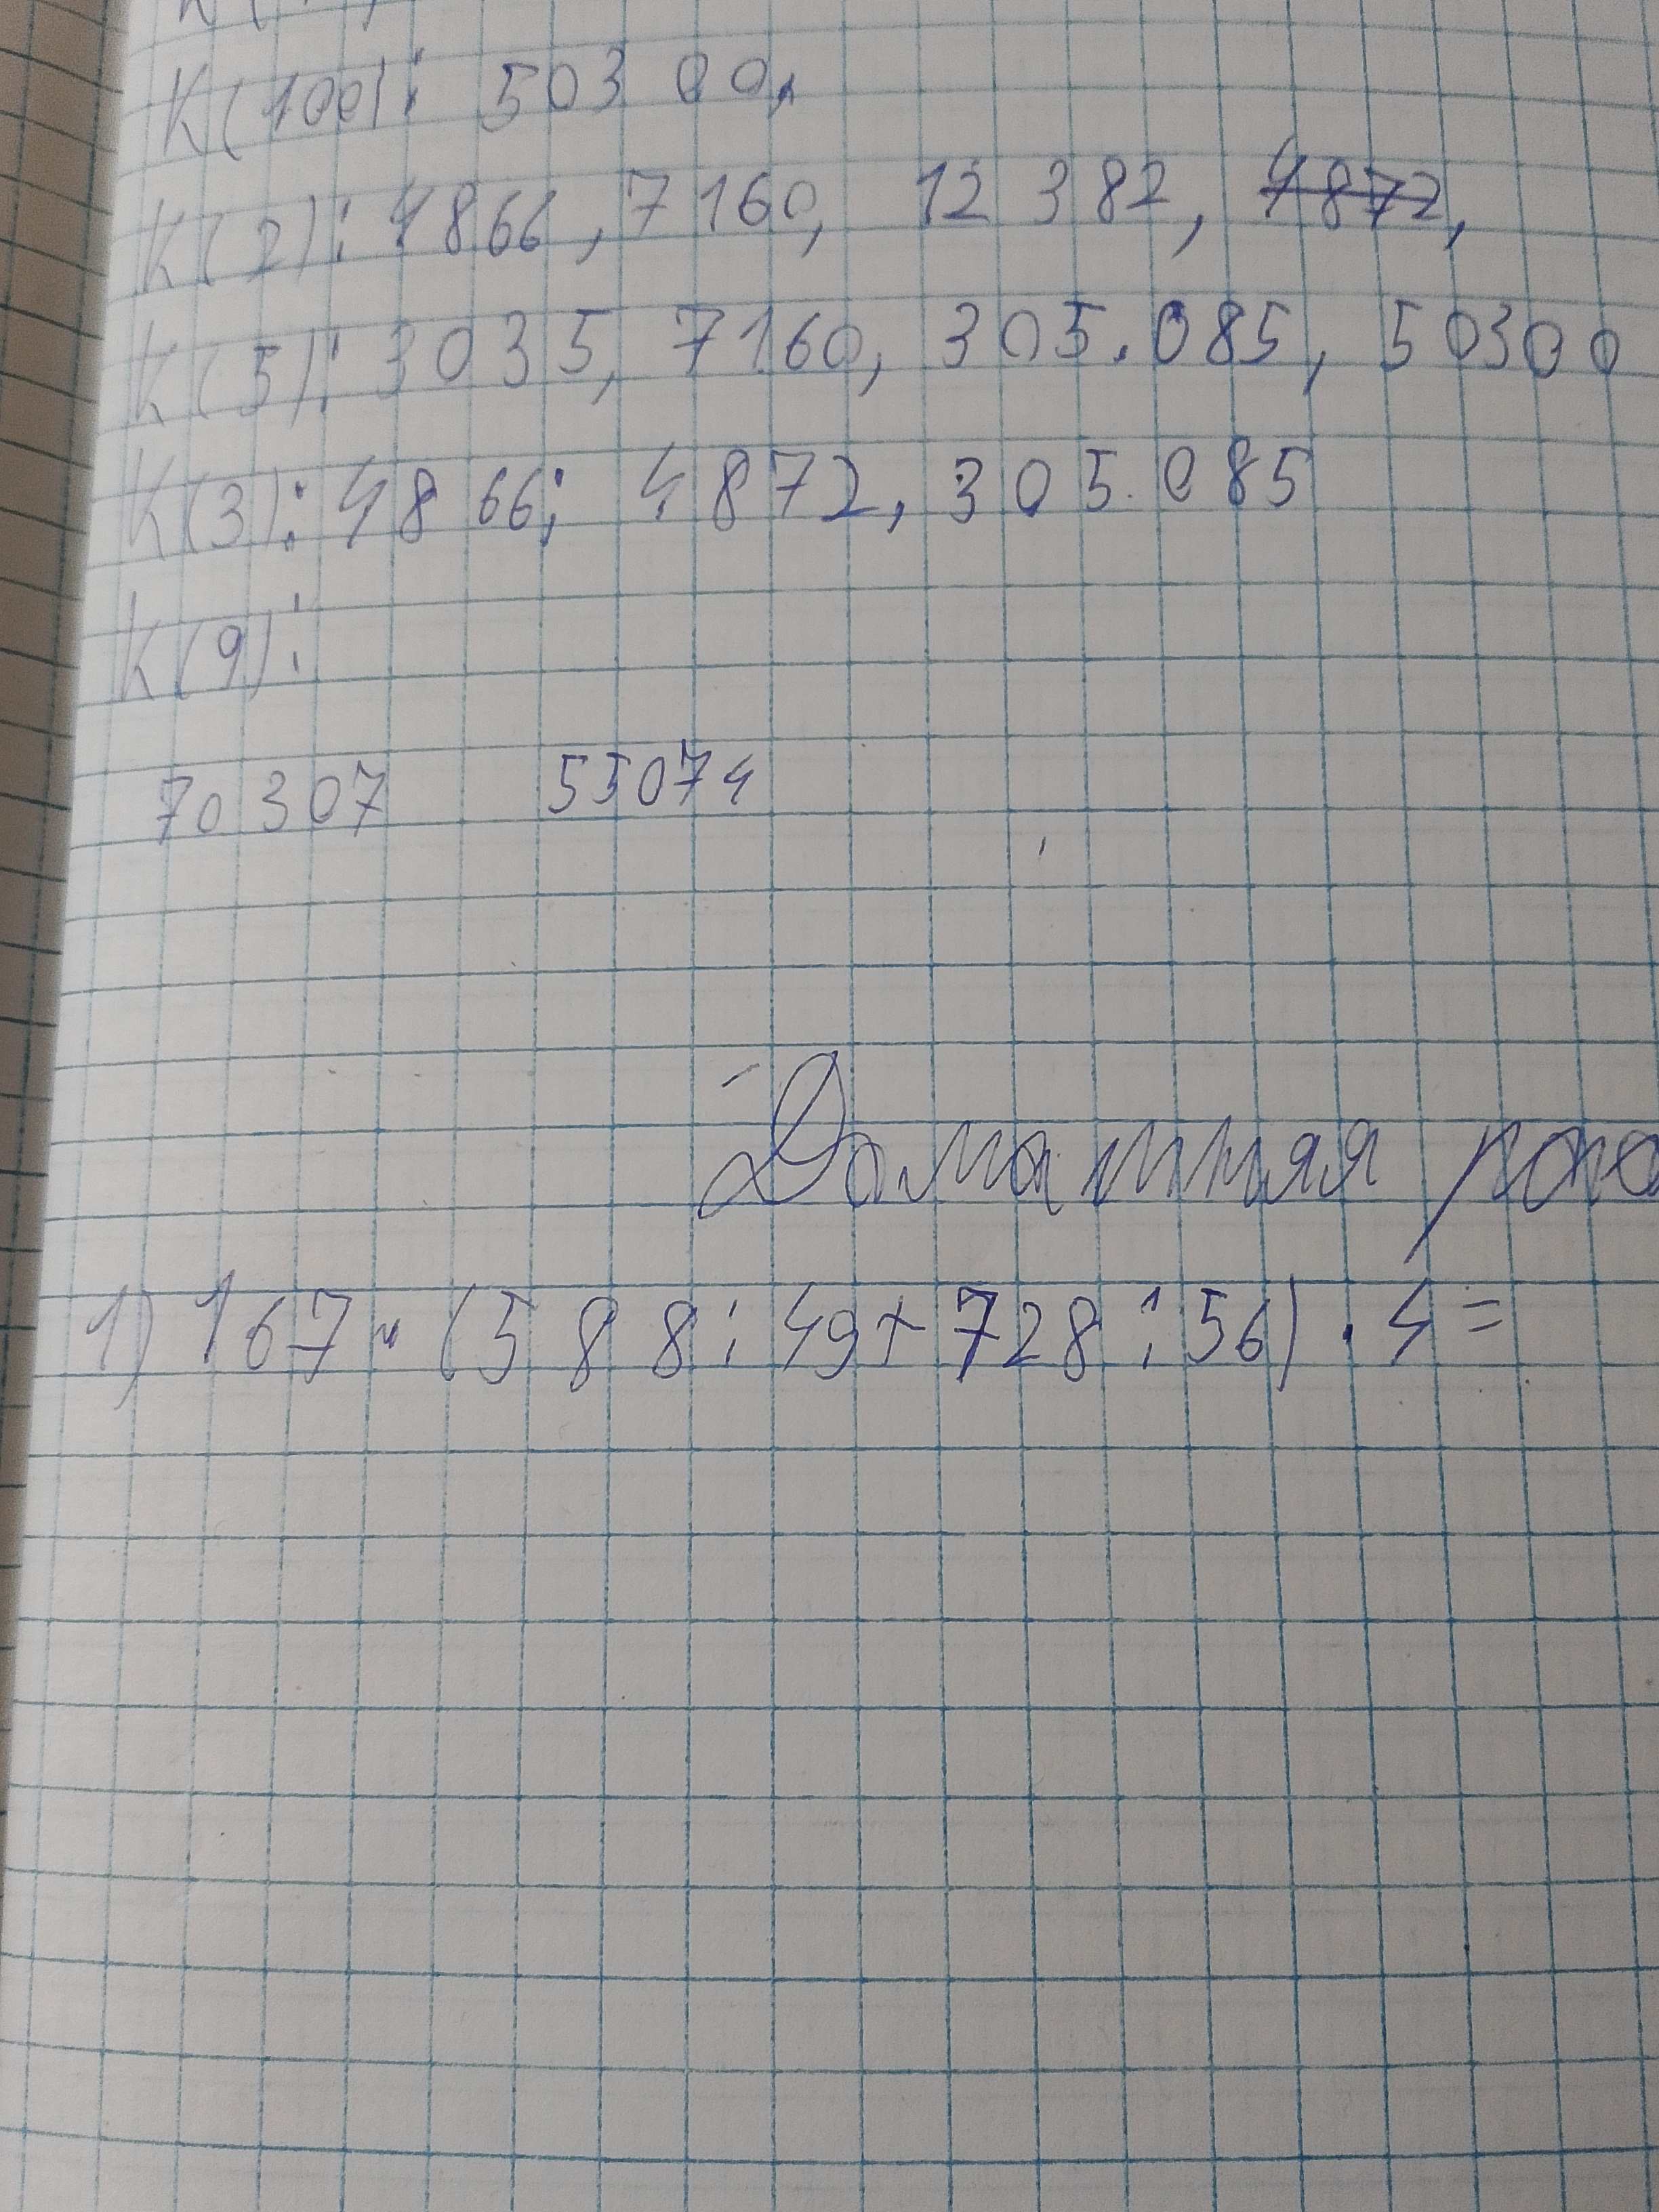 К(100): 503 00,
К(2): 4866, 7160, 12 382, 4872,
К(5): 3035, 7160, 305.085, 50300
К(3): 4866; 4872, 305.085
К(9):
70 307 55074
Домашняя
1) 167 · (588 : 49 + 728 : 56) · 4 =